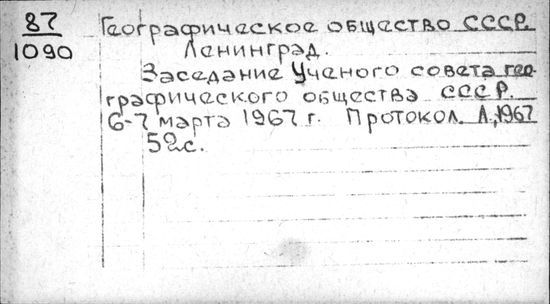 87
1090
Географическое общество СССР.
Ленинград.
Заседание Ученого совета гео-
графического общества СССР.
6-7 марта 1967 г. Протокол. Л., 1967
52с.